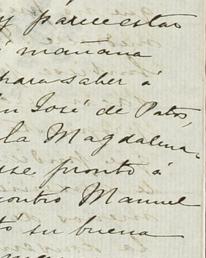 y parece estar
mañana
para saber á
José de Patos,
la Magdalena
se pronto á
contró Manuel
tó su buena